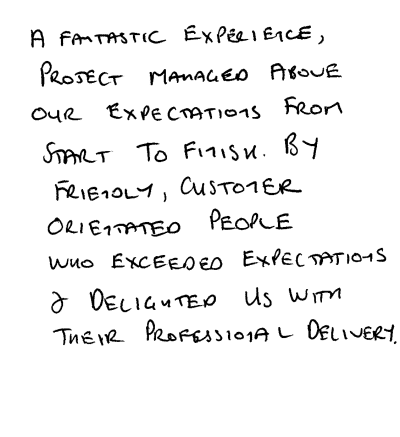 A FANTASTIC EXPERIENCE,
PROJECT MANAGED ABOVE
OUR EXPECTATIONS FROM
START TO FINISH. BY
FRIENDLY, CUSTOMER
ORIENTATED PEOPLE
WHO EXCEEDED EXPECTATIONS
& DELIGHTED US WITH
THEIR PROFESSIONAL DELIVERY.